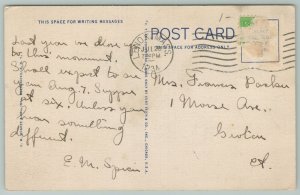 THIS SPACE FOR WRITING MESSAGES
POST CARD
THIS SPACE FOR ADDRESS ONLY
1-
JUL 30
PM
Last year we drove up
to this monument.
Shall expect to see
you Aug. 7. Supper
at six, unless you
hear something
different.
E. M. Spicer
Mrs. Frances Parker
1 Morse Ave.
Groton
Ct.